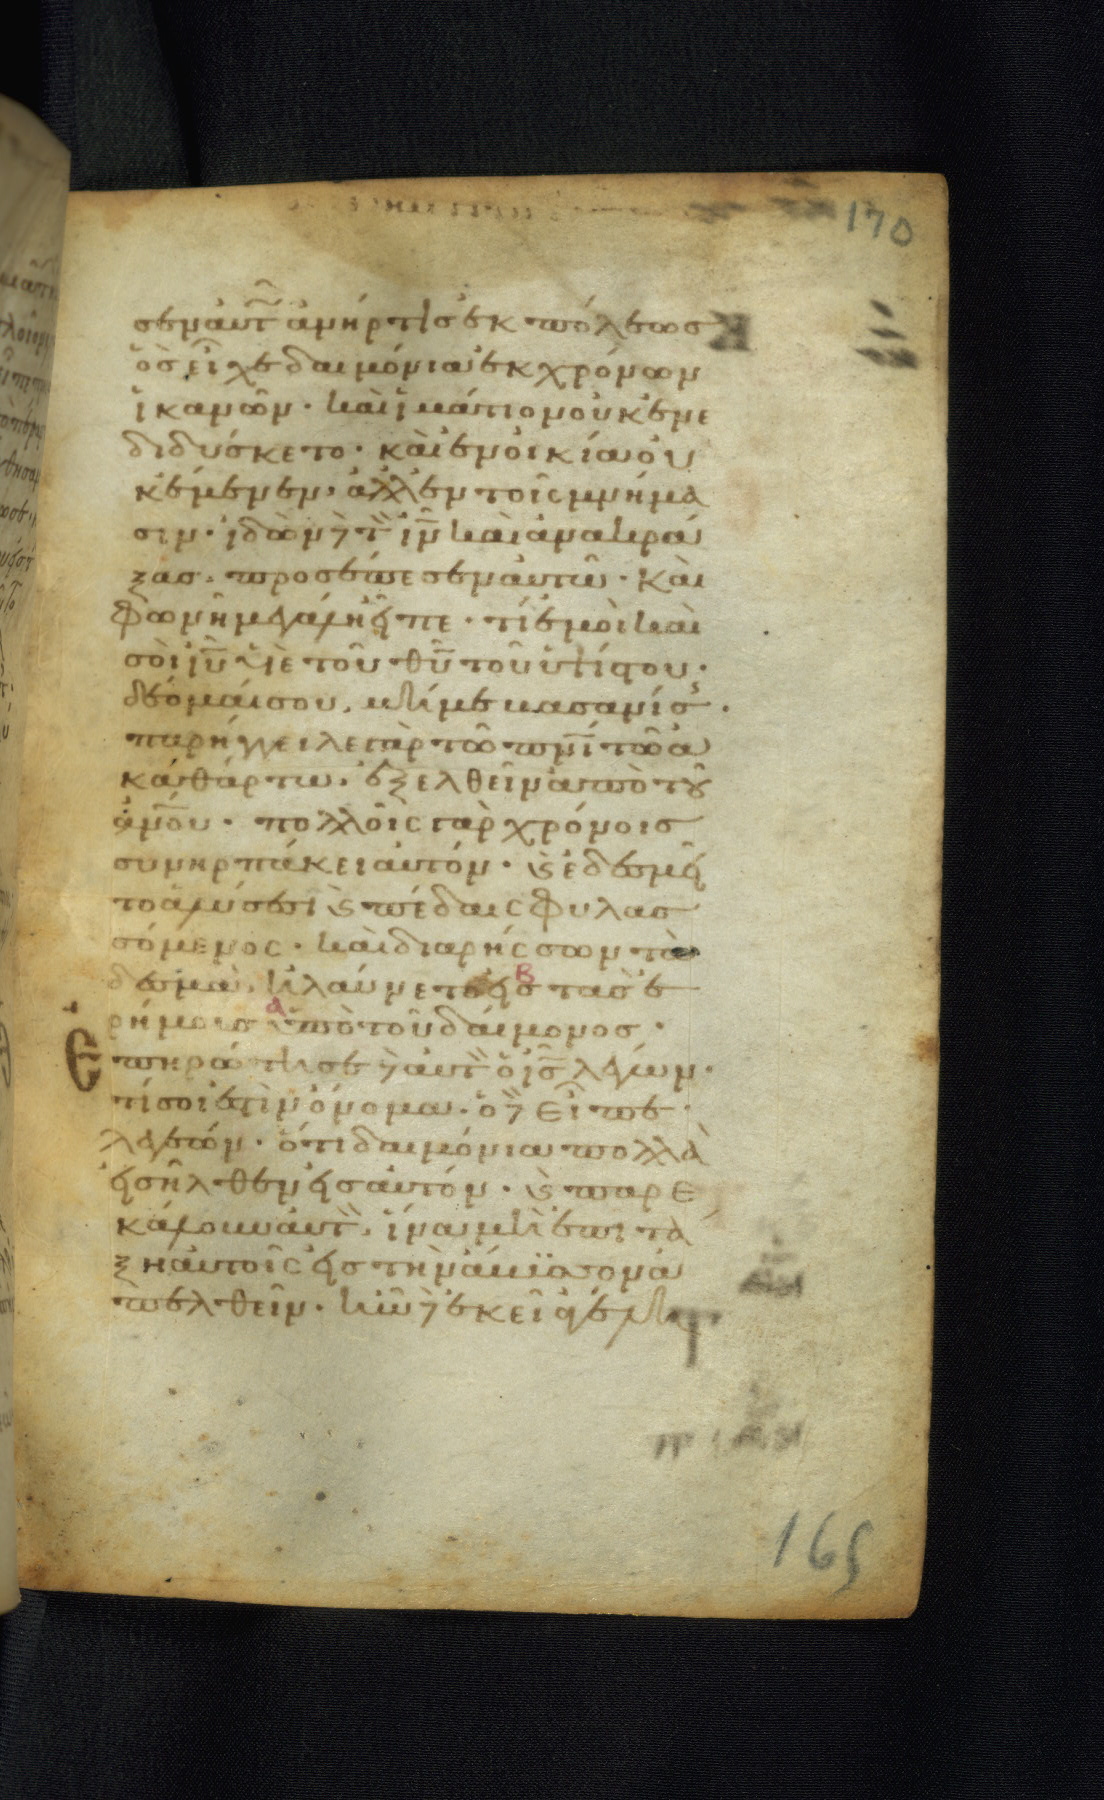 170
σεν αὐτῶ ἀνήρ τις ἐκ πόλεως
ὃς εἶχε δαιμόνια ἐκ χρόνων
ἱκανῶν· καὶ ἱμάτιον οὐκ ἐνε
διδύσκετο· καὶ ἐν οἰκία οὐ
κ ἔμενεν· ἀλλ' ἐν τοῖς μνήμα
σιν· ἰδὼν δὲ τὸν ἰν καὶ ἀνακρά
ξας· προσέπεσεν αὐτῶ· καὶ
φωνῆ μεγάλη εἶπε· τί ἐμοὶ καὶ
σοὶ ιυ υἱὲ τοῦ θυ τοῦ ὑψίστου·
δέομαί σου, μή με βασανίσης·
παρήγγειλε γὰρ τῶ πνι τῶ ἀ
καθάρτω· ἐξελθεῖν ἀπὸ τοῦ
ἀνου· πολλοῖς γὰρ χρόνοις
συνηρπάκει αὐτόν· καὶ ἐδεσμεῖ
το ἁλύσεσι καὶ πέδαις φυλασ
σόμενος· καὶ διαρήσσων τὰ
δεσμὰ, ἠλαύνετο εἰς τὰς ἐ
ρήμους ὑπὸ τοῦ δαίμονος·
Ἐπηρώτησε δὲ αὐτὸν ὁ ις λέγων·
τί σοι ἐστὶν ὄνομα· ὁ δὲ εἶπε·
λεγεών· ὅτι δαιμόνια πολλὰ
εἰσῆλθεν εἰς αὐτόν· καὶ παρε
κάλουν αὐτὸν, ἵνα μὴ ἐπιτά
ξη αὐτοῖς εἰς τὴν ἄβυσσον ἀ
πελθεῖν· ἦν δὲ ἐκεῖ ἀγέλη
165